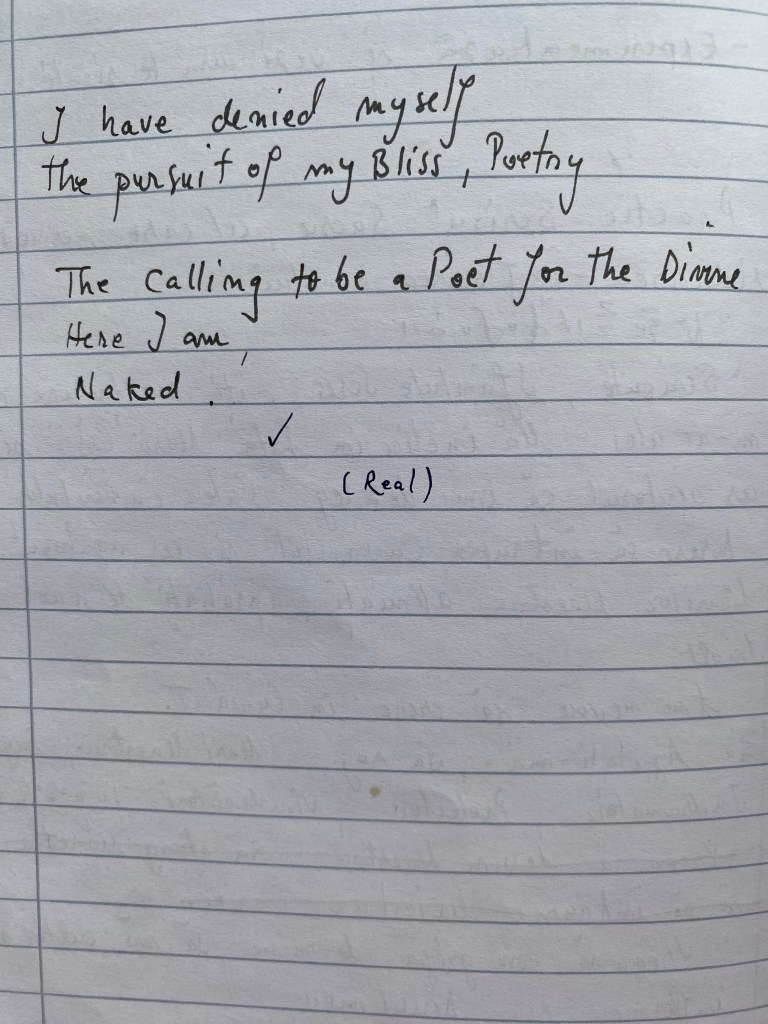 I have denied myself
the pursuit of my Bliss, Poetry
The calling to be a Poet for the Divine
Here I am,
Naked.
✓
(Real)